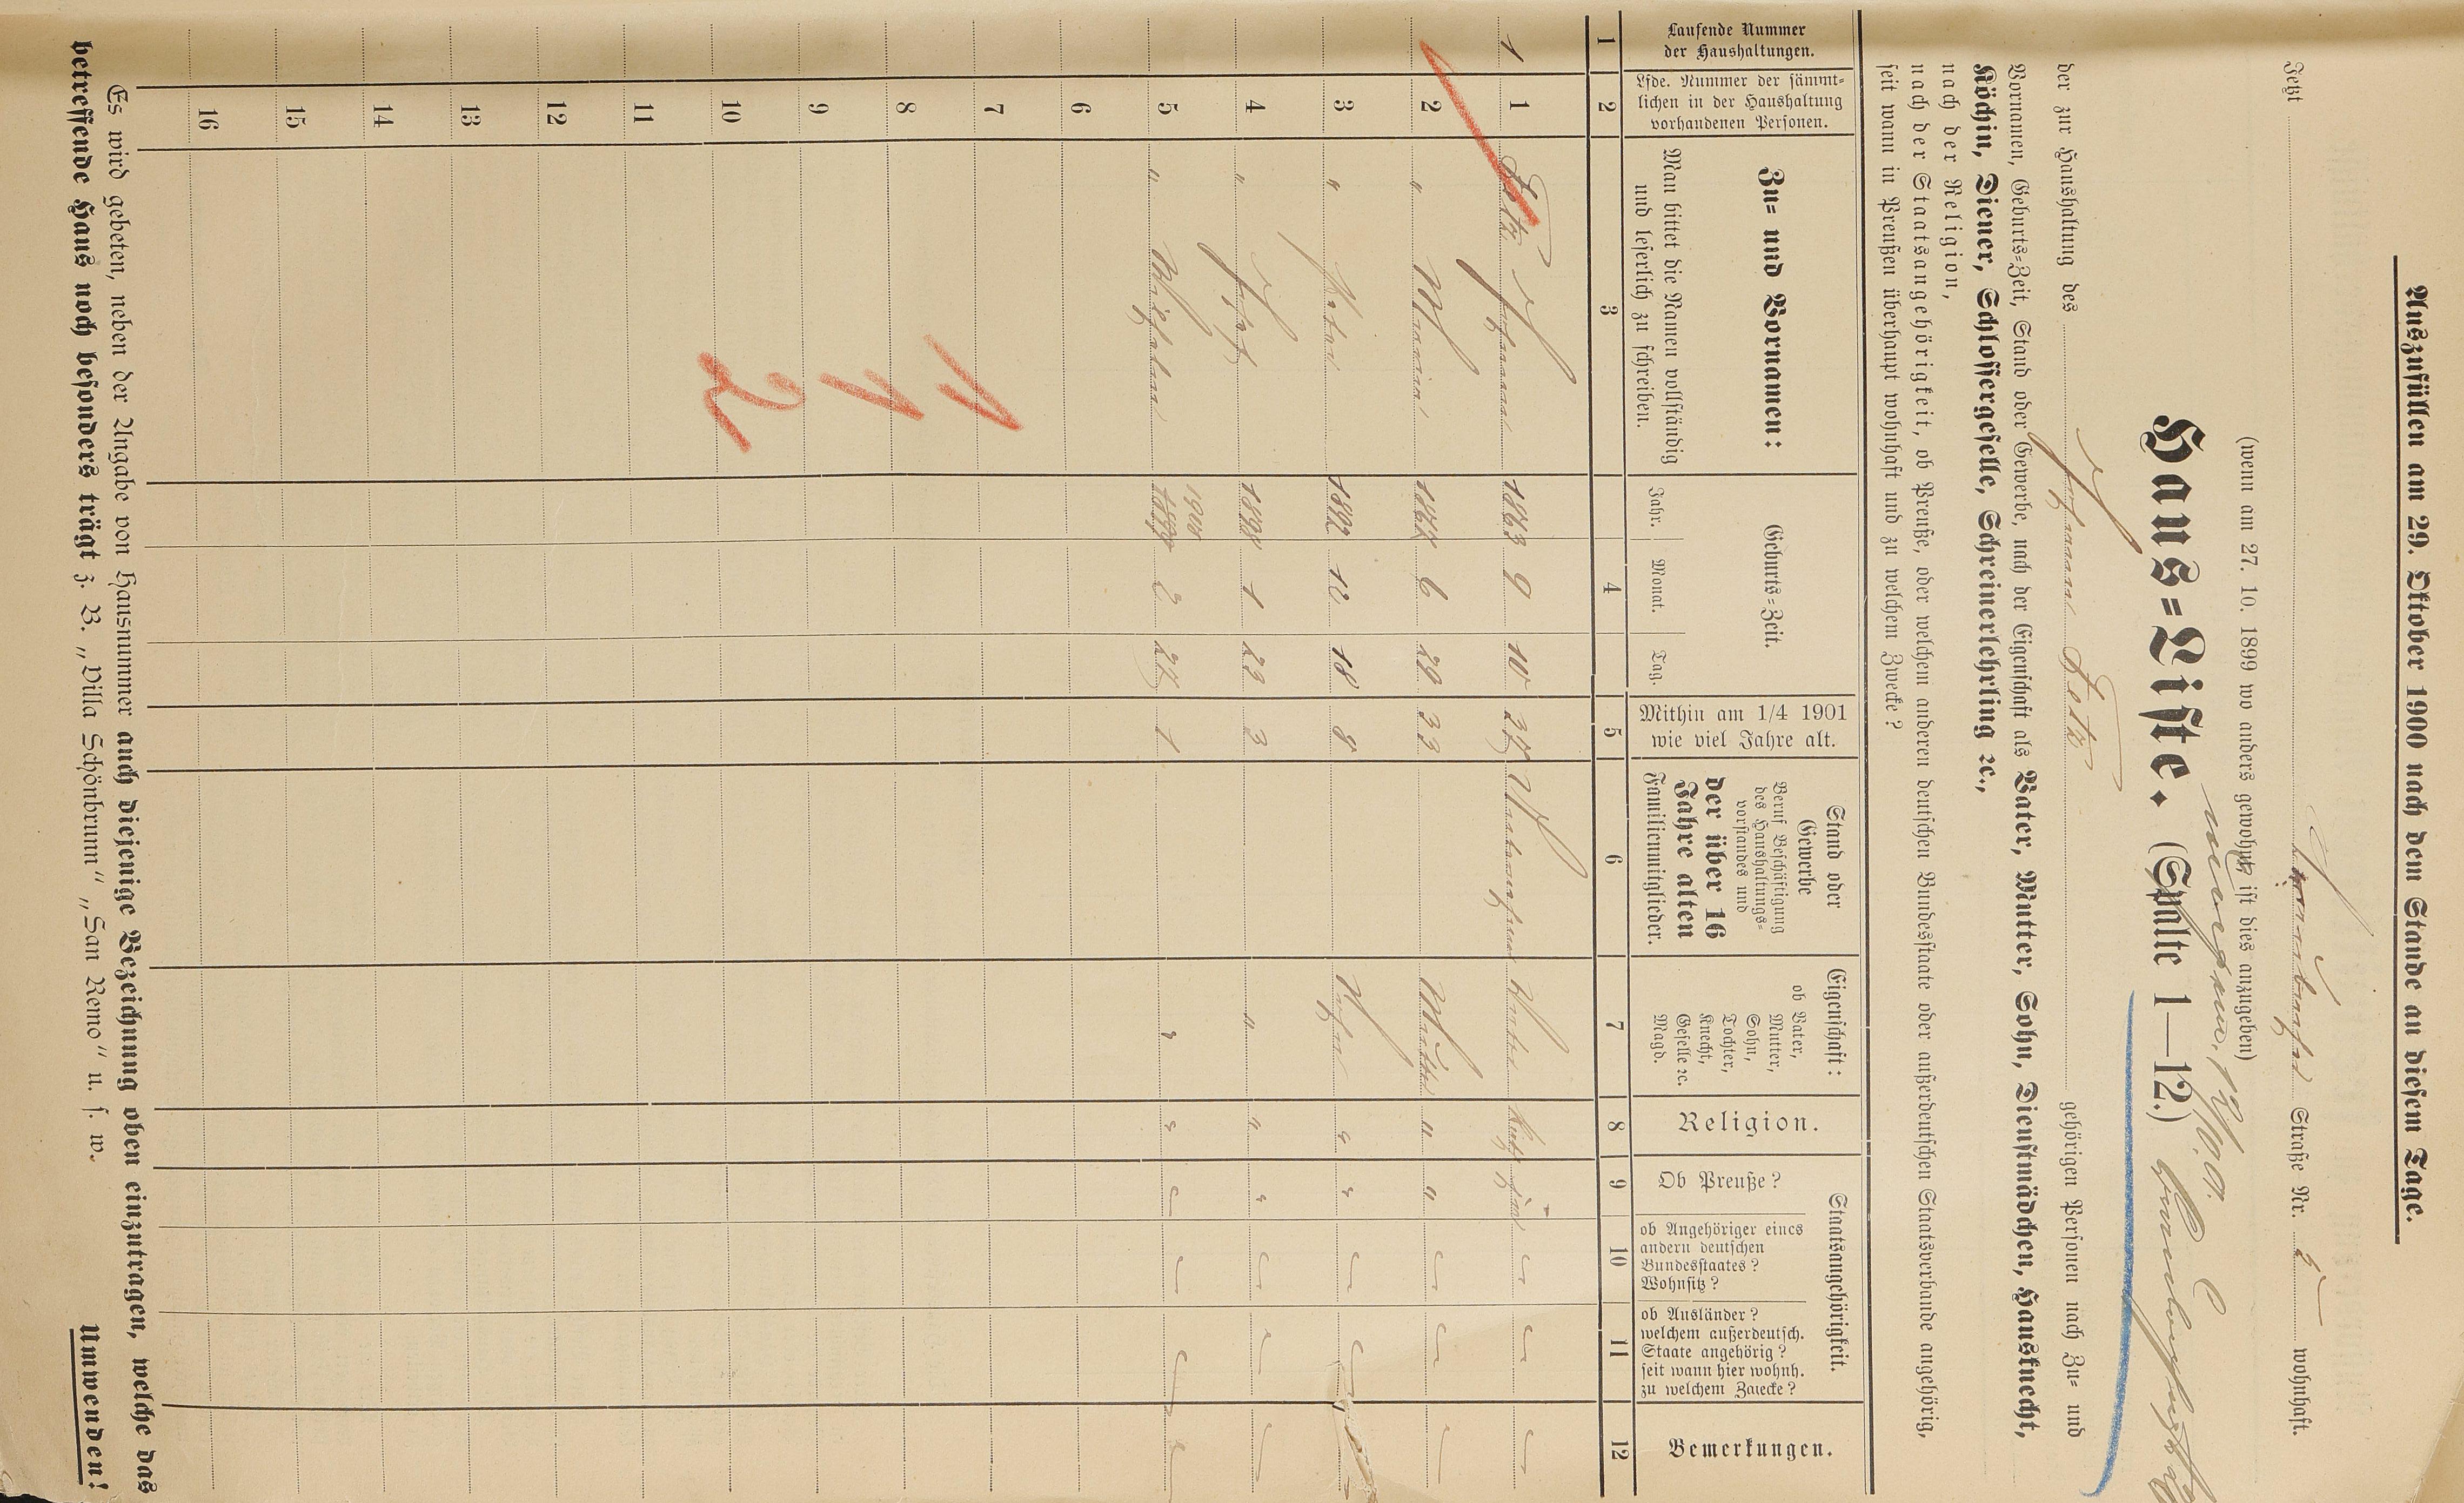 Auszufüllen am 29. Oktober 1900 nach dem Stande an diesem Tage.
Jetzt Straße Nr. 5 wohnhaft.
(wenn am 27. 10. 1899 wo anders gewohnt, ist dies anzugeben)
Haus=Liste. (Spalte 1—12.)
der zur Haushaltung des Johann gehörigen Personen nach Zu= und
Vornamen, Geburts=Zeit, Stand oder Gewerbe, nach der Eigenschaft als Vater, Mutter, Sohn, Dienstmädchen, Hausknecht,
Köchin, Diener, Schlossergeselle, Schreinerlehrling ꝛc.,
nach der Religion,
nach der Staatsangehörigkeit, ob Preuße, oder welchem anderen deutschen Bundesstaate oder außerdeutschen Staatsverbande angehörig,
seit wann in Preußen überhaupt wohnhaft und zu welchem Zwecke?
Laufende Nummer
der Haushaltungen.
Lfde. Nummer der sämmt=
lichen in der Haushaltung
vorhandenen Personen.
Zu= und Vornamen:
Man bittet die Namen vollständig
und leserlich zu schreiben.
Geburts=Zeit.
Jahr. Monat. Tag.
Mithin am 1/4 1901
wie viel Jahre alt.
Stand oder
Gewerbe
Beruf Beschäftigung
des Haushaltungs=
vorstandes und
der über 16
Jahre alten
Familienmitglieder.
Eigenschaft:
ob Vater,
Mutter,
Sohn,
Tochter,
Knecht,
Geselle ꝛc.
Magd.
Religion.
Staatsangehörigkeit.
Ob Preuße?
ob Angehöriger eines
andern deutschen
Bundesstaates?
Wohnsitz?
ob Ausländer?
welchem außerdeutsch.
Staate angehörig?
seit wann hier wohnh.
zu welchem Zwecke?
Bemerkungen.
1 2 3 4 5 6 7 8 9 10 11 12
1 1 Johann 1863 9 10 37 Vater Kath ja
2 " 6 29 33 Mutter " "
3 " Anton 1892 12 18 8 Sohn " "
4 " Josef 1898 1 23 3 " " "
5 " Wilhelm 1900 2 27 1 " "
6
7
8
9
10
11
12
13
14
15
16
Es wird gebeten, neben der Angabe von Hausnummer auch diejenige Bezeichnung oben einzutragen, welche das
betreffende Haus noch besonders trägt z. B. „Villa Schönbrunn“ „San Remo“ u. s. w.
Umwenden!